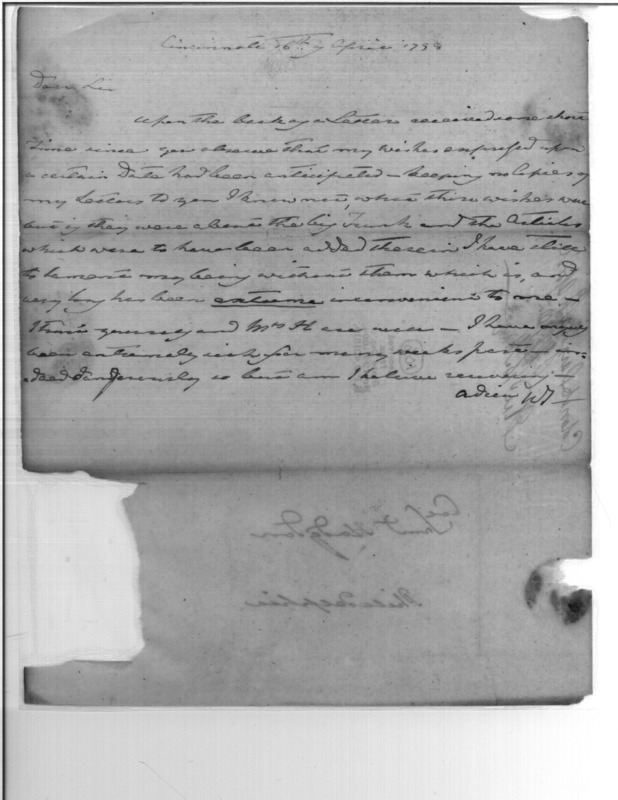 Cincinnati 16th of April 179
Dear Sir
Upon the back of a Letter received some short
time since you observe that my wishes expressed upon
a certain Date had been anticipated - keeping no Copies of
my Letters to you I know not, what those wishes were
but if they were about the big Trunk and the Articles
which were to have been added therein I have still
to lament my being without them which is, and
very long has been extreme inconvenient to me -
I hope yourself and Mrs H are well - I have
been extremely sick for many weeks past - in-
deed dangerously so but am I believe recovering -
adieu W
Col
Saml Hodgdon
Philadelphia